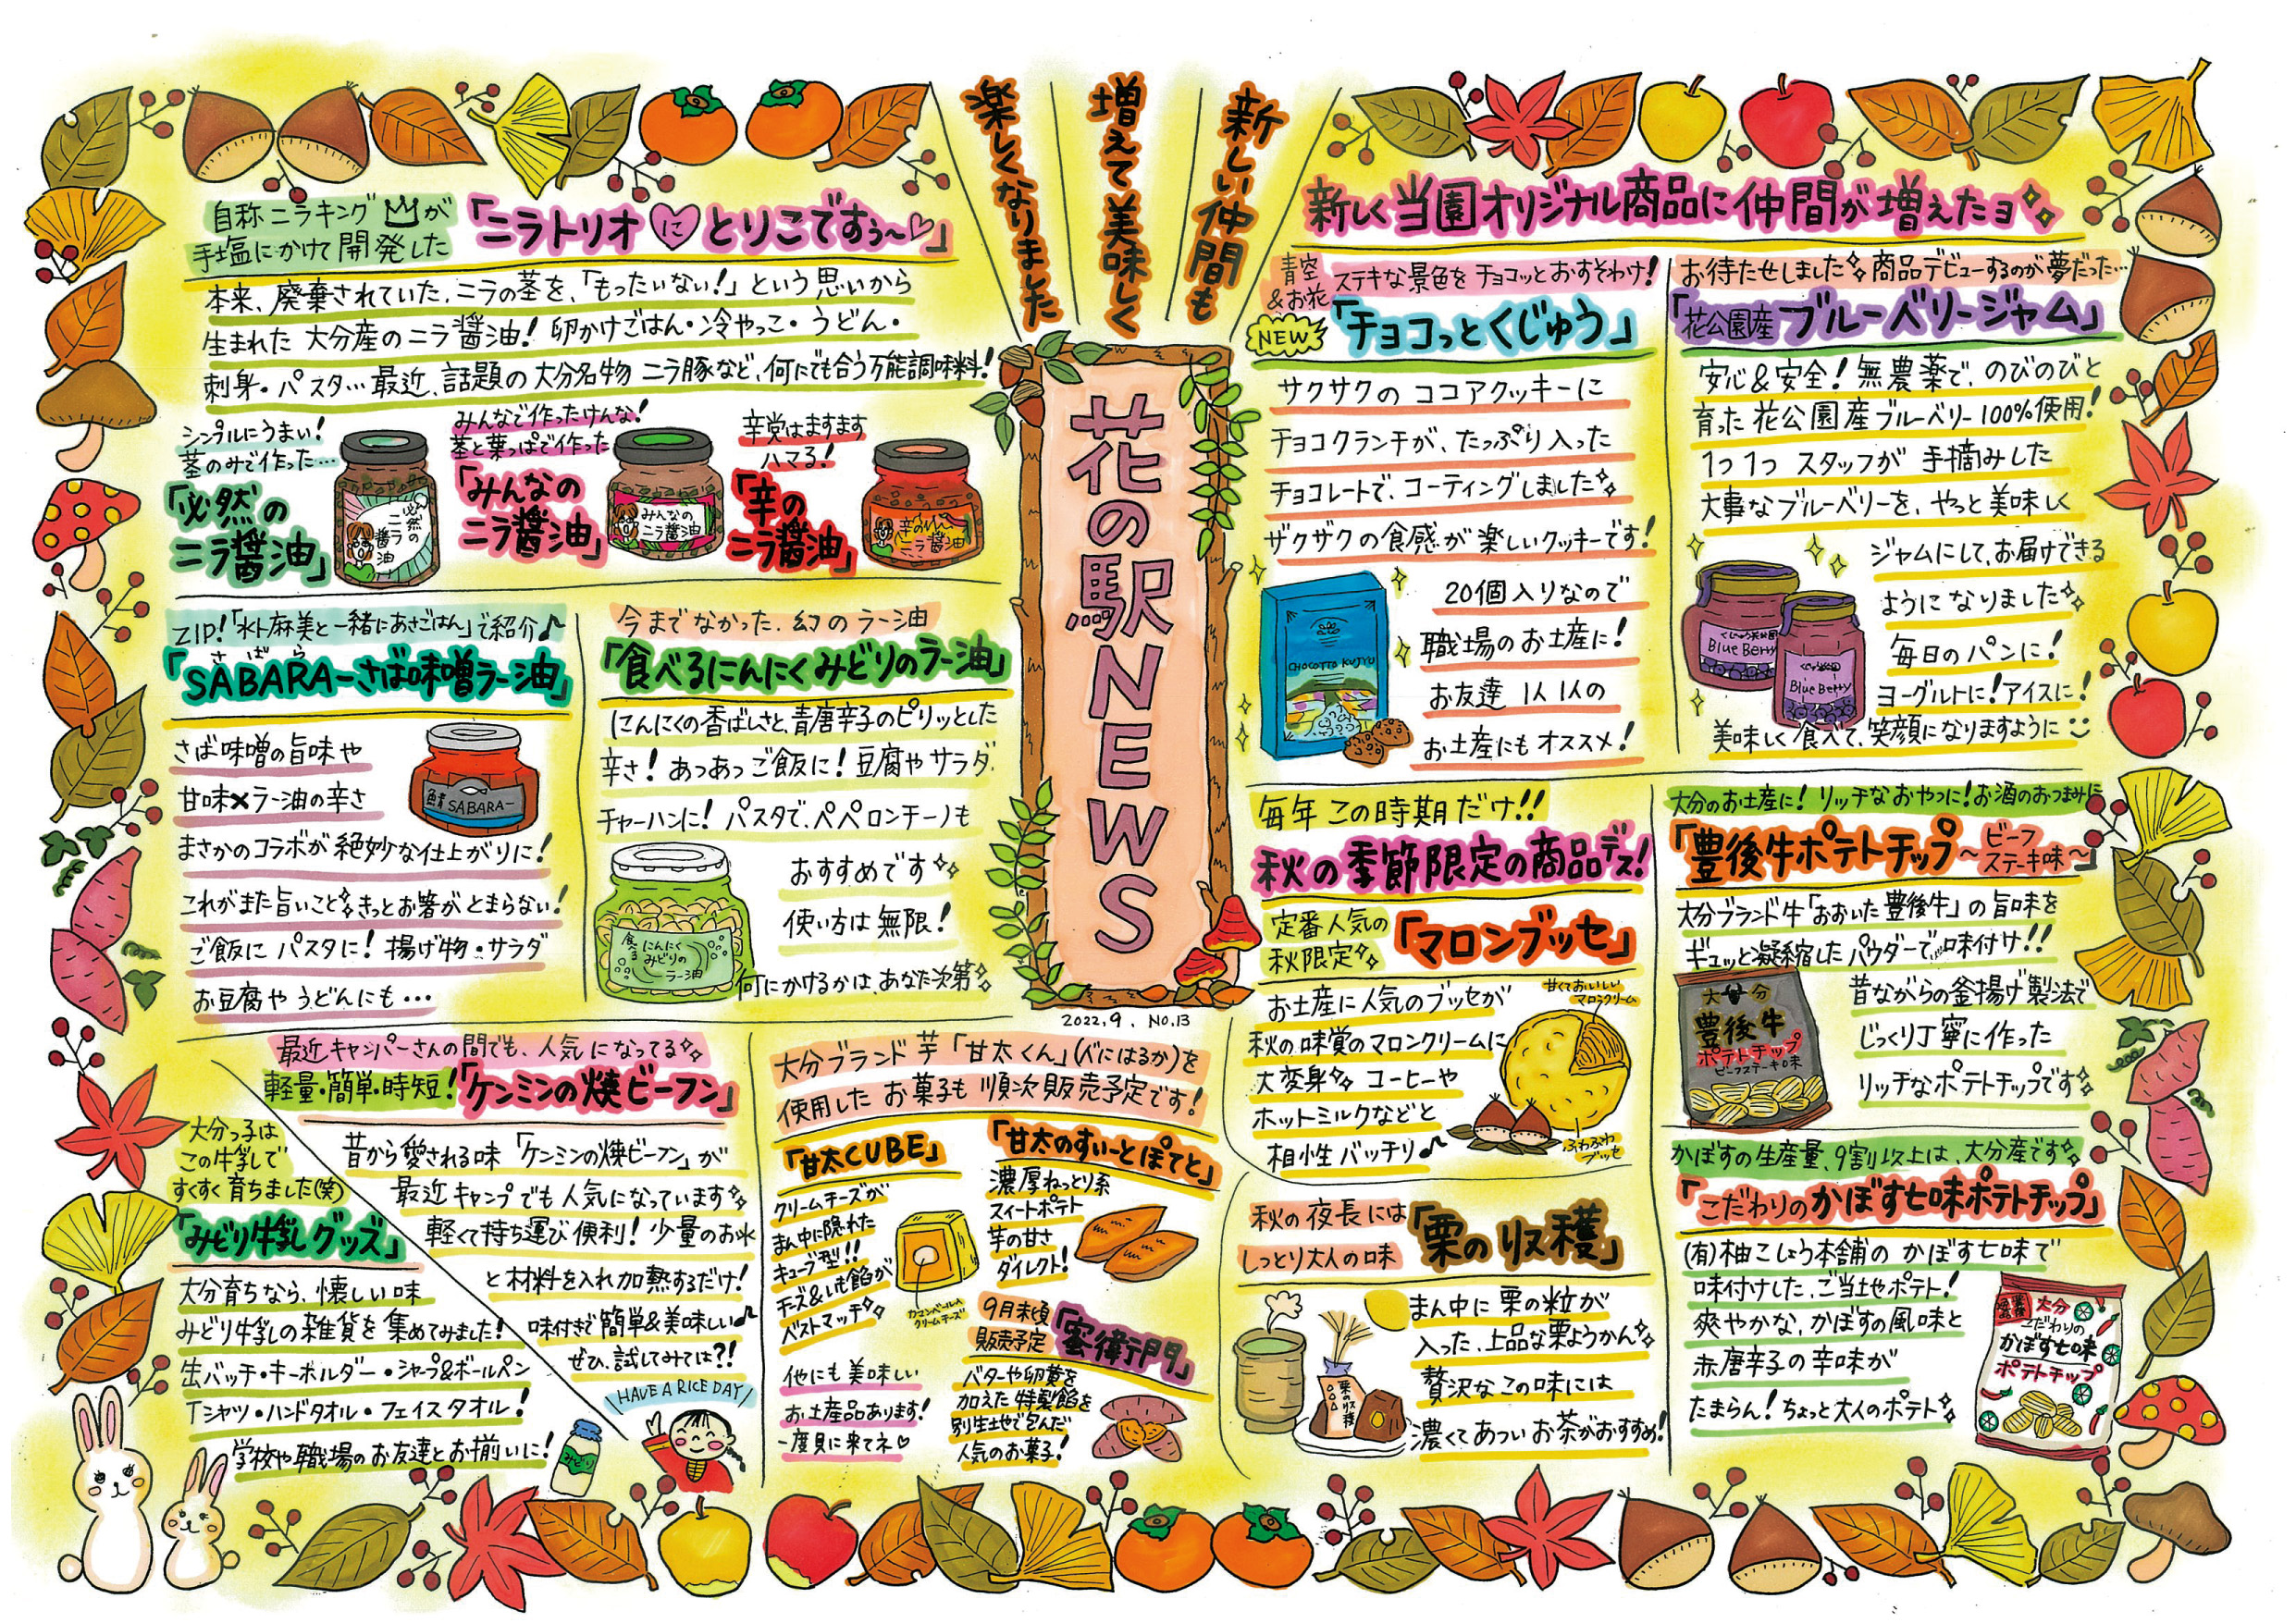 新しい仲間も
増えて美味しく
楽しくなりました
花の駅NEWS
2022.9. NO.13
新しく当園オリジナル商品に仲間が増えたヨ
青空&お花
ステキな景色をチョコッとおすそわけ!
NEW
「チョコっとくじゅう」
サクサクのココアクッキーに
チョコクランチが、たっぷり入った
チョコレートで、コーティングしました
ザクザクの食感が楽しいクッキーです!
20個入りなので
職場のお土産に!
お友達1人1人の
お土産にもオススメ!
CHOCOTTO KUJYU
お待たせしました 商品デビューするのが夢だった…
「花公園産ブルーベリージャム」
安心&安全!無農薬で、のびのびと
育った花公園産ブルーベリー100%使用!
1つ1つスタッフが手摘みした
大事なブルーベリーを、やっと美味しく
ジャムにして、お届けできる
ようになりました
毎日のパンに!
ヨーグルトに!アイスに!
美味しく食べて、笑顔になりますように
くじゅう花公園
Blue Berry
くじゅう花公園
Blue Berry
毎年この時期だけ!!
秋の季節限定の商品デス!
定番人気の
秋限定
「マロンブッセ」
お土産に人気のブッセが
秋の味覚のマロンクリームに
大変身 コーヒーや
ホットミルクなどと
相性バッチリ♪
甘くておいしい
マロンクリーム
ふわふわ
ブッセ
秋の夜長には
しっとり大人の味
「栗の収穫」
まん中に栗の粒が
入った、上品な栗ようかん
贅沢なこの味には
濃くてあついお茶がおすすめ!
栗の収穫
大分のお土産に!リッチなおやつに!お酒のおつまみに
「豊後牛ポテトチップ
~ビーフステーキ味~」
大分ブランド牛「おおいた豊後牛」の旨味を
ギュッと凝縮したパウダーで味付け!!
昔ながらの釜揚げ製法で
じっくり丁寧に作った
リッチなポテトチップです
大分
豊後牛
ポテトチップ
ビーフステーキ味
かぼすの生産量、9割以上は、大分産です
「こだわりのかぼす七味ポテトチップ」
(有)柚こしょう本舗のかぼす七味で
味付けした、ご当地ポテト!
爽やかな、かぼすの風味と
赤唐辛子の辛味が
たまらん!ちょっと大人のポテト
大分
こだわりの
かぼす七味
ポテトチップ
自称ニラキングが
手塩にかけて開発した
「ニラトリオにとりこですぅ~♡」
本来、廃棄されていた、ニラの茎を、「もったいない!」という思いから
生まれた大分産のニラ醤油!卵かけごはん・冷やっこ・うどん・
刺身・パスタ…最近、話題の大分名物ニラ豚など、何にでも合う万能調味料!
シンプルにうまい!
茎のみで作った…
「必然の
ニラ醤油」
必然の
ニラ
醤油
みんなで作ったけんな!
茎と葉っぱで作った
「みんなの
ニラ醤油」
みんなの
ニラ醤油
辛党はますます
ハマる!
「辛の
ニラ醤油」
辛の
ニラ醤油
ZIP!「水卜麻美と一緒にあさごはん」で紹介♪
さばら
「SABARA-さば味噌ラー油」
さば味噌の旨味や
甘味×ラー油の辛さ
まさかのコラボが絶妙な仕上がりに!
これがまた旨いこと きっとお箸がとまらない!
ご飯にパスタに!揚げ物・サラダ
お豆腐やうどんにも…
鯖 SABARA-
今までなかった、幻のラー油
「食べるにんにくみどりのラー油」
にんにくの香ばしさと、青唐辛子のピリッとした
辛さ!あつあつご飯に!豆腐やサラダ、
チャーハンに!パスタで、ペペロンチーノも
おすすめです
使い方は無限!
何にかけるかは、あなた次第
食べる
にんにく
みどりの
ラー油
最近キャンパーさんの間でも、人気になってる
軽量・簡単・時短!「ケンミンの焼ビーフン」
昔から愛される味「ケンミンの焼ビーフン」が
最近キャンプでも人気になっています
軽くて持ち運び便利!少量のお水
と材料を入れ加熱するだけ!
味付きで簡単&美味しい♪
ぜひ、試してみては?!
HAVE A RICE DAY!
大分っ子は
この牛乳で
すくすく育ちました(笑)
「みどり牛乳グッズ」
大分育ちなら、懐しい味
みどり牛乳の雑貨を集めてみました!
缶バッチ・キーホルダー・シャープ&ボールペン
Tシャツ・ハンドタオル・フェイスタオル!
学校や職場のお友達とお揃いに!
みどり
大分ブランド芋「甘太くん」(べにはるか)を
使用したお菓子も順次販売予定です!
「甘太CUBE」
クリームチーズが
まん中に隠れた
キューブ型!!
チーズ&いも餡が
ベストマッチ
カマンベール入
クリームチーズ
「甘太のすいーとぽてと」
濃厚ねっとり系
スイートポテト
芋の甘さ
ダイレクト!
9月末頃
販売予定
「蜜衛門」
バターや卵黄を
加えた特製餡を
別生地で包んだ
人気のお菓子!
他にも美味しい
お土産品あります!
一度見に来てネ♡